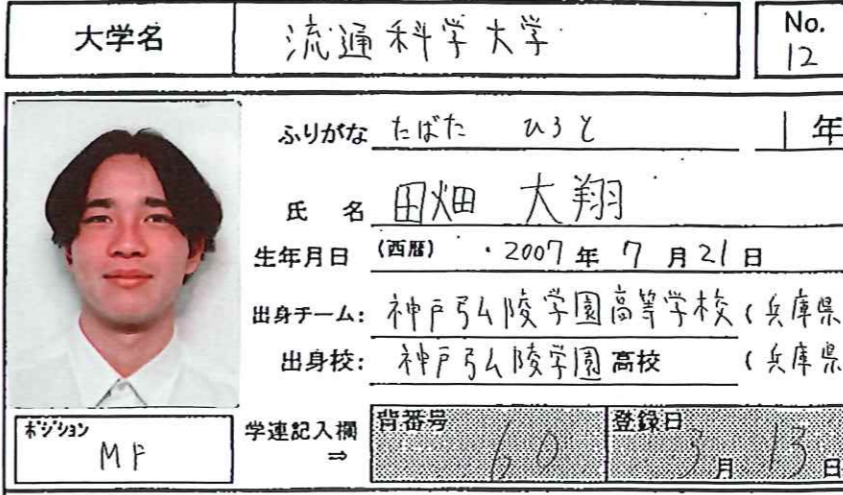 大学名 流通科学大学 No. 12
ふりがな たばた ひろと 1年
氏 名 田畑 大翔
生年月日 (西暦) ・2007年 7月21日
出身チーム: 神戸弘陵学園高等学校 (兵庫県
出身校: 神戸弘陵学園 高校 (兵庫県
ポジション MF 学連記入欄 ⇒ 背番号 60 登録日 3月13日